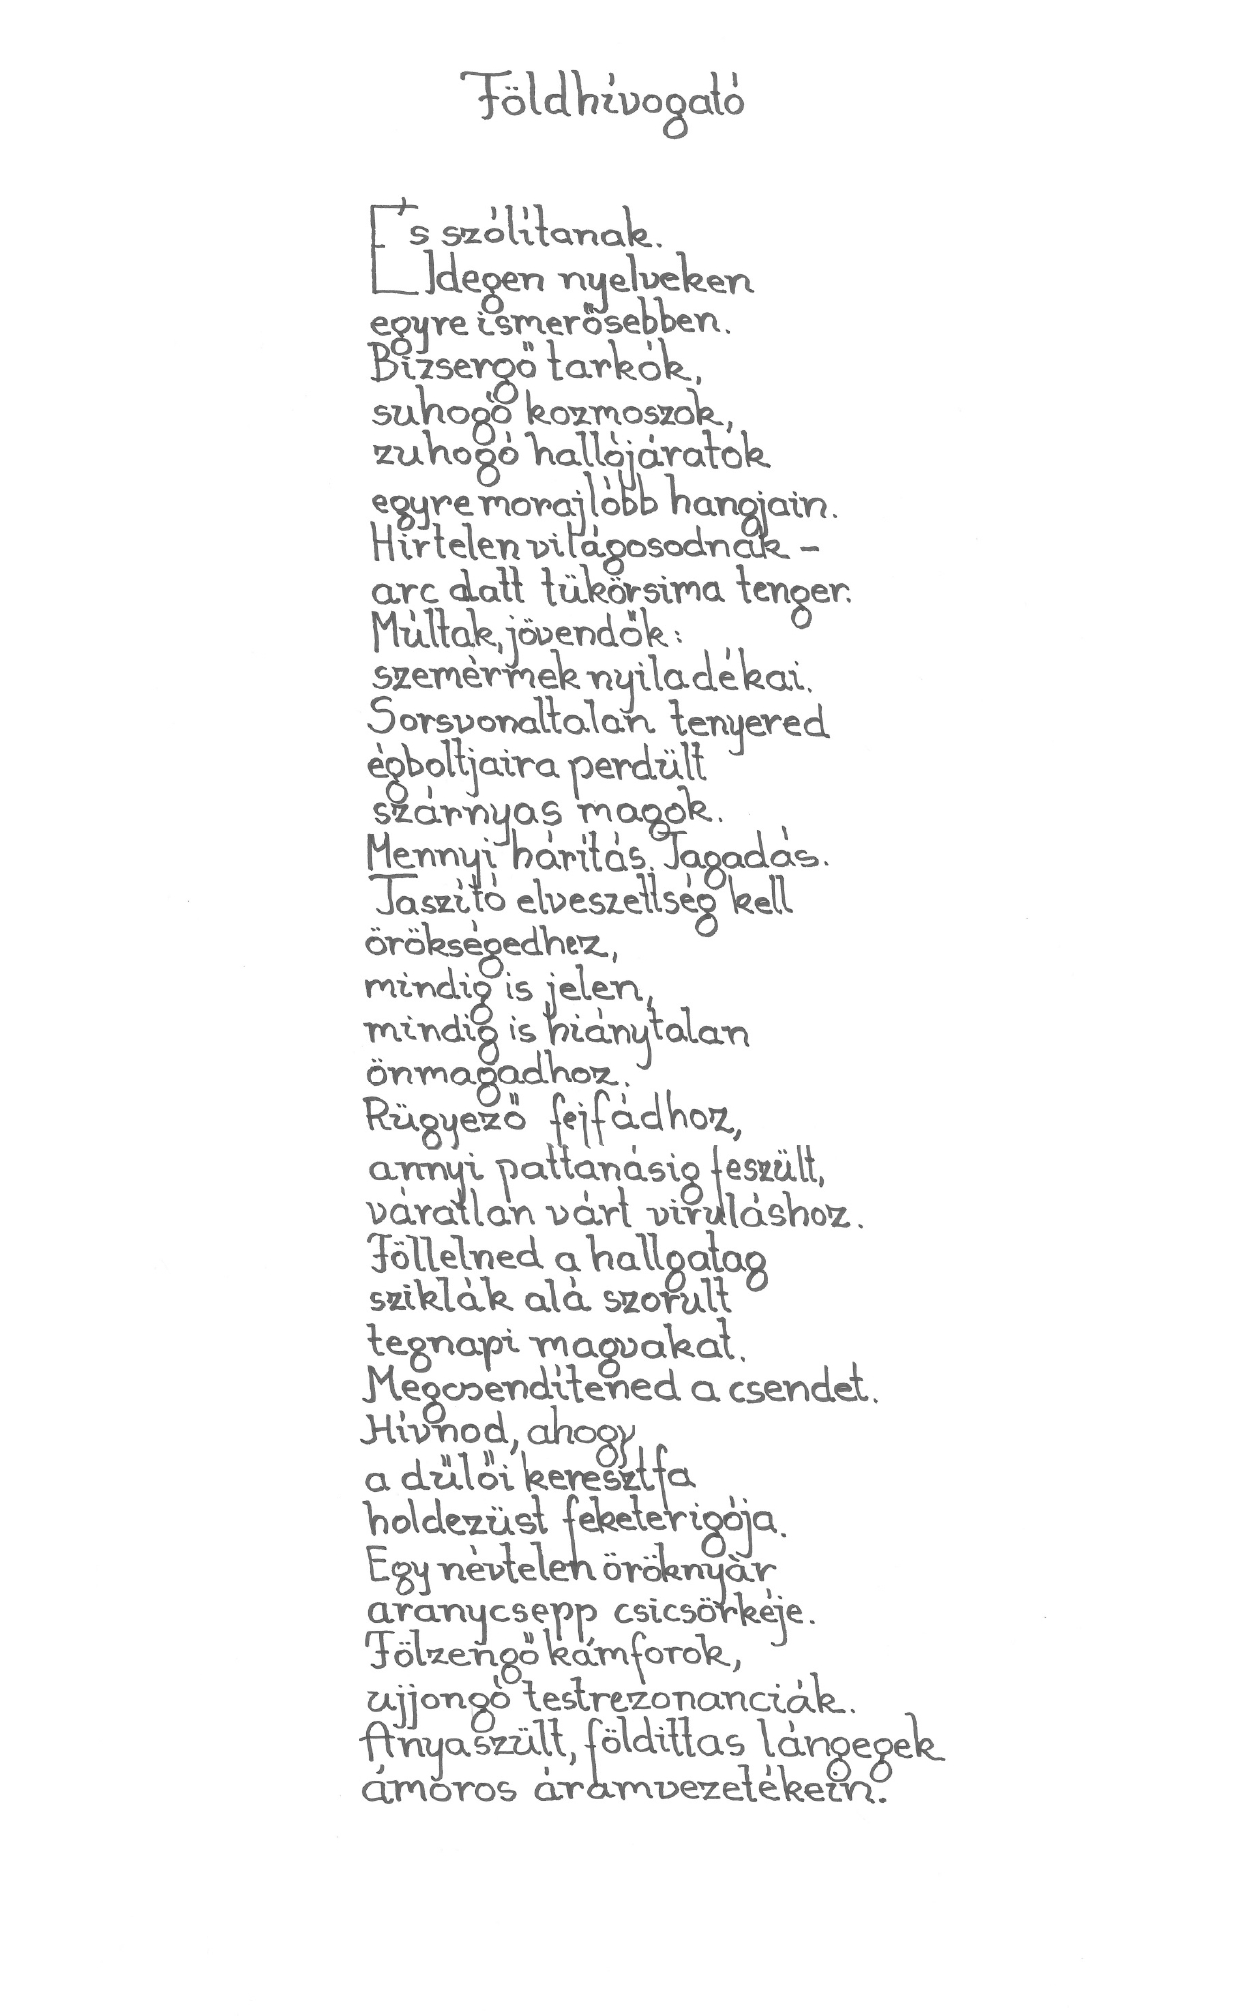 Földhívogató
És szólítanak.
Idegen nyelveken
egyre ismerősebben.
Bizsergő tarkók,
suhogó kozmoszok,
zuhogó hallójáratok
egyre morajlóbb hangjain.
Hirtelen világosodnak –
arc alatt tükörsima tenger.
Múltak, jövendők:
szemérmek nyiladékai.
Sorsvonaltalan tenyered
égboltjaira perdült
szárnyas magok.
Mennyi hárítás. Tagadás.
Taszító elveszettség kell
örökségedhez,
mindig is jelen,
mindig is hiánytalan
önmagadhoz.
Rügyező fejfádhoz,
annyi pattanásig feszült,
váratlan várt viruláshoz.
Föllelned a hallgatag
sziklák alá szorult
tegnapi magvakat.
Megcsendítened a csendet.
Hívnod, ahogy
a dűlői keresztfa
holdezüst feketerigója.
Egy névtelen öröknyár
aranycsepp csicsörkéje.
Fölzengő kámforok,
ujjongó testrezonanciák.
Anyaszült, földittas lángegek
ámoros áramvezetékein.